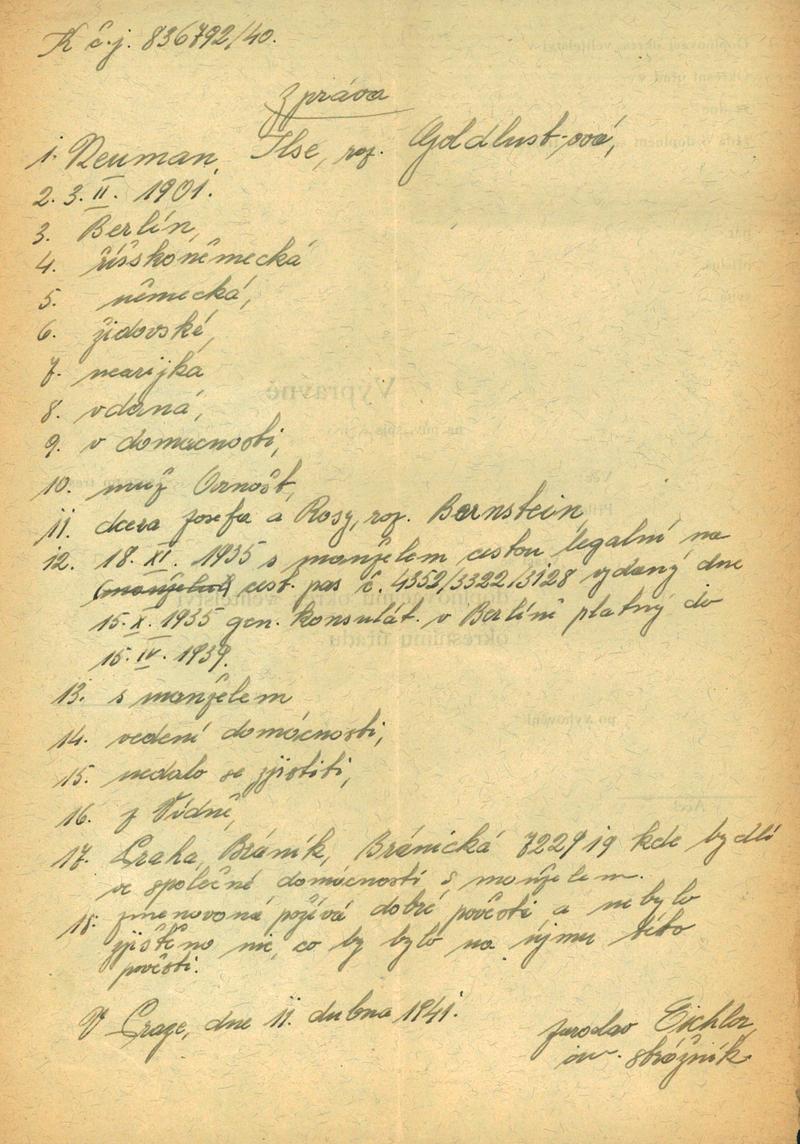 K č.j. 836792/40.
Zpráva
1. Neuman, Ilse, roz. Goldlust-ová,
2. 3. II. 1901.
3. Berlín,
4. říšskoněmecká
5. německá,
6. židovské,
7. nearijka
8. vdaná,
9. v domácnosti,
10. muž Arnošt,
11. dcera Josefa a Rosy, roz. Bernstein,
12. 18. XI. 1935 s manželem cestou legalní na
cest. pas č. 4352/3322/3128 vydaný dne
15. X. 1935 gen. konsulát. v Berlíně platný do
15. IV. 1939.
13. s manželem
14. vedení domácnosti,
15. nedalo se zjistiti,
16. z Vídně,
17. Praha, Bráník, Bránická 722 kde bydlí
ve společné domácnosti s manželem.
18. jmenovaná požívá dobré pověsti a nebylo
zjištěno nic, co by bylo na újmu této
pověsti.
V Praze, dne 11. dubna 1941.
Jaroslav Eichler,
strážník